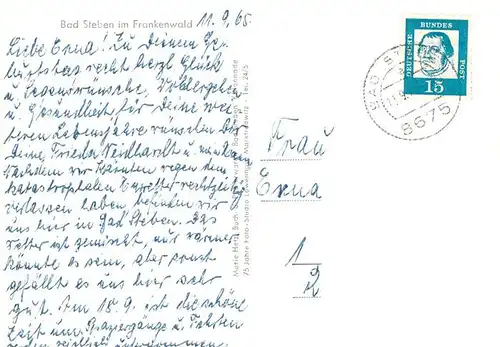 Bad Steben im Frankenwald
11.9.65
Liebe Erna! Zu Deinem Ge-
burtstag recht herzl. Glück
u. Segenswünsche, Wohlergehen
u. Gesundheit für Deine wei-
teren Lebensjahre wünschen Dir
Deine Frieda Neidhardt u.
Nachdem wir Kärnten wegen dem
katastrophalen rechtzeitig
verlassen haben, befinden wir
uns hier in Bad Steben. Das
Wetter ist gemischt, nur wärmer
könnte es sein, aber sonst
gefällt es uns hier sehr
gut. Am 18.9. ist die schöne
Zeit um. Spaziergänge u. Fahrten
unternommen
Frau
Erna
1
2
DEUTSCHE
BUNDES
POST
15
BAD ST
11.9
8675
75 Jahre Foto-Studio
Tel. 24/5